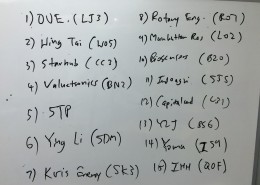 1) OUE. (LJ3)
2) Wing Tai (W05)
3) Starhub (CC3)
4) Valuetronics (BN2)
5) STP
6) Ying Li (5DM)
7) Kris Energy (SK3)
8) Rotary Eng. (BO7)
9) Manhattan Res (LO2)
10) Biosensors (B20)
11) Indoagri (5JS)
12) Capitaland (C31)
13) YZJ (BS6)
14) Yoma (Z59)
15) IHH (Q0F)